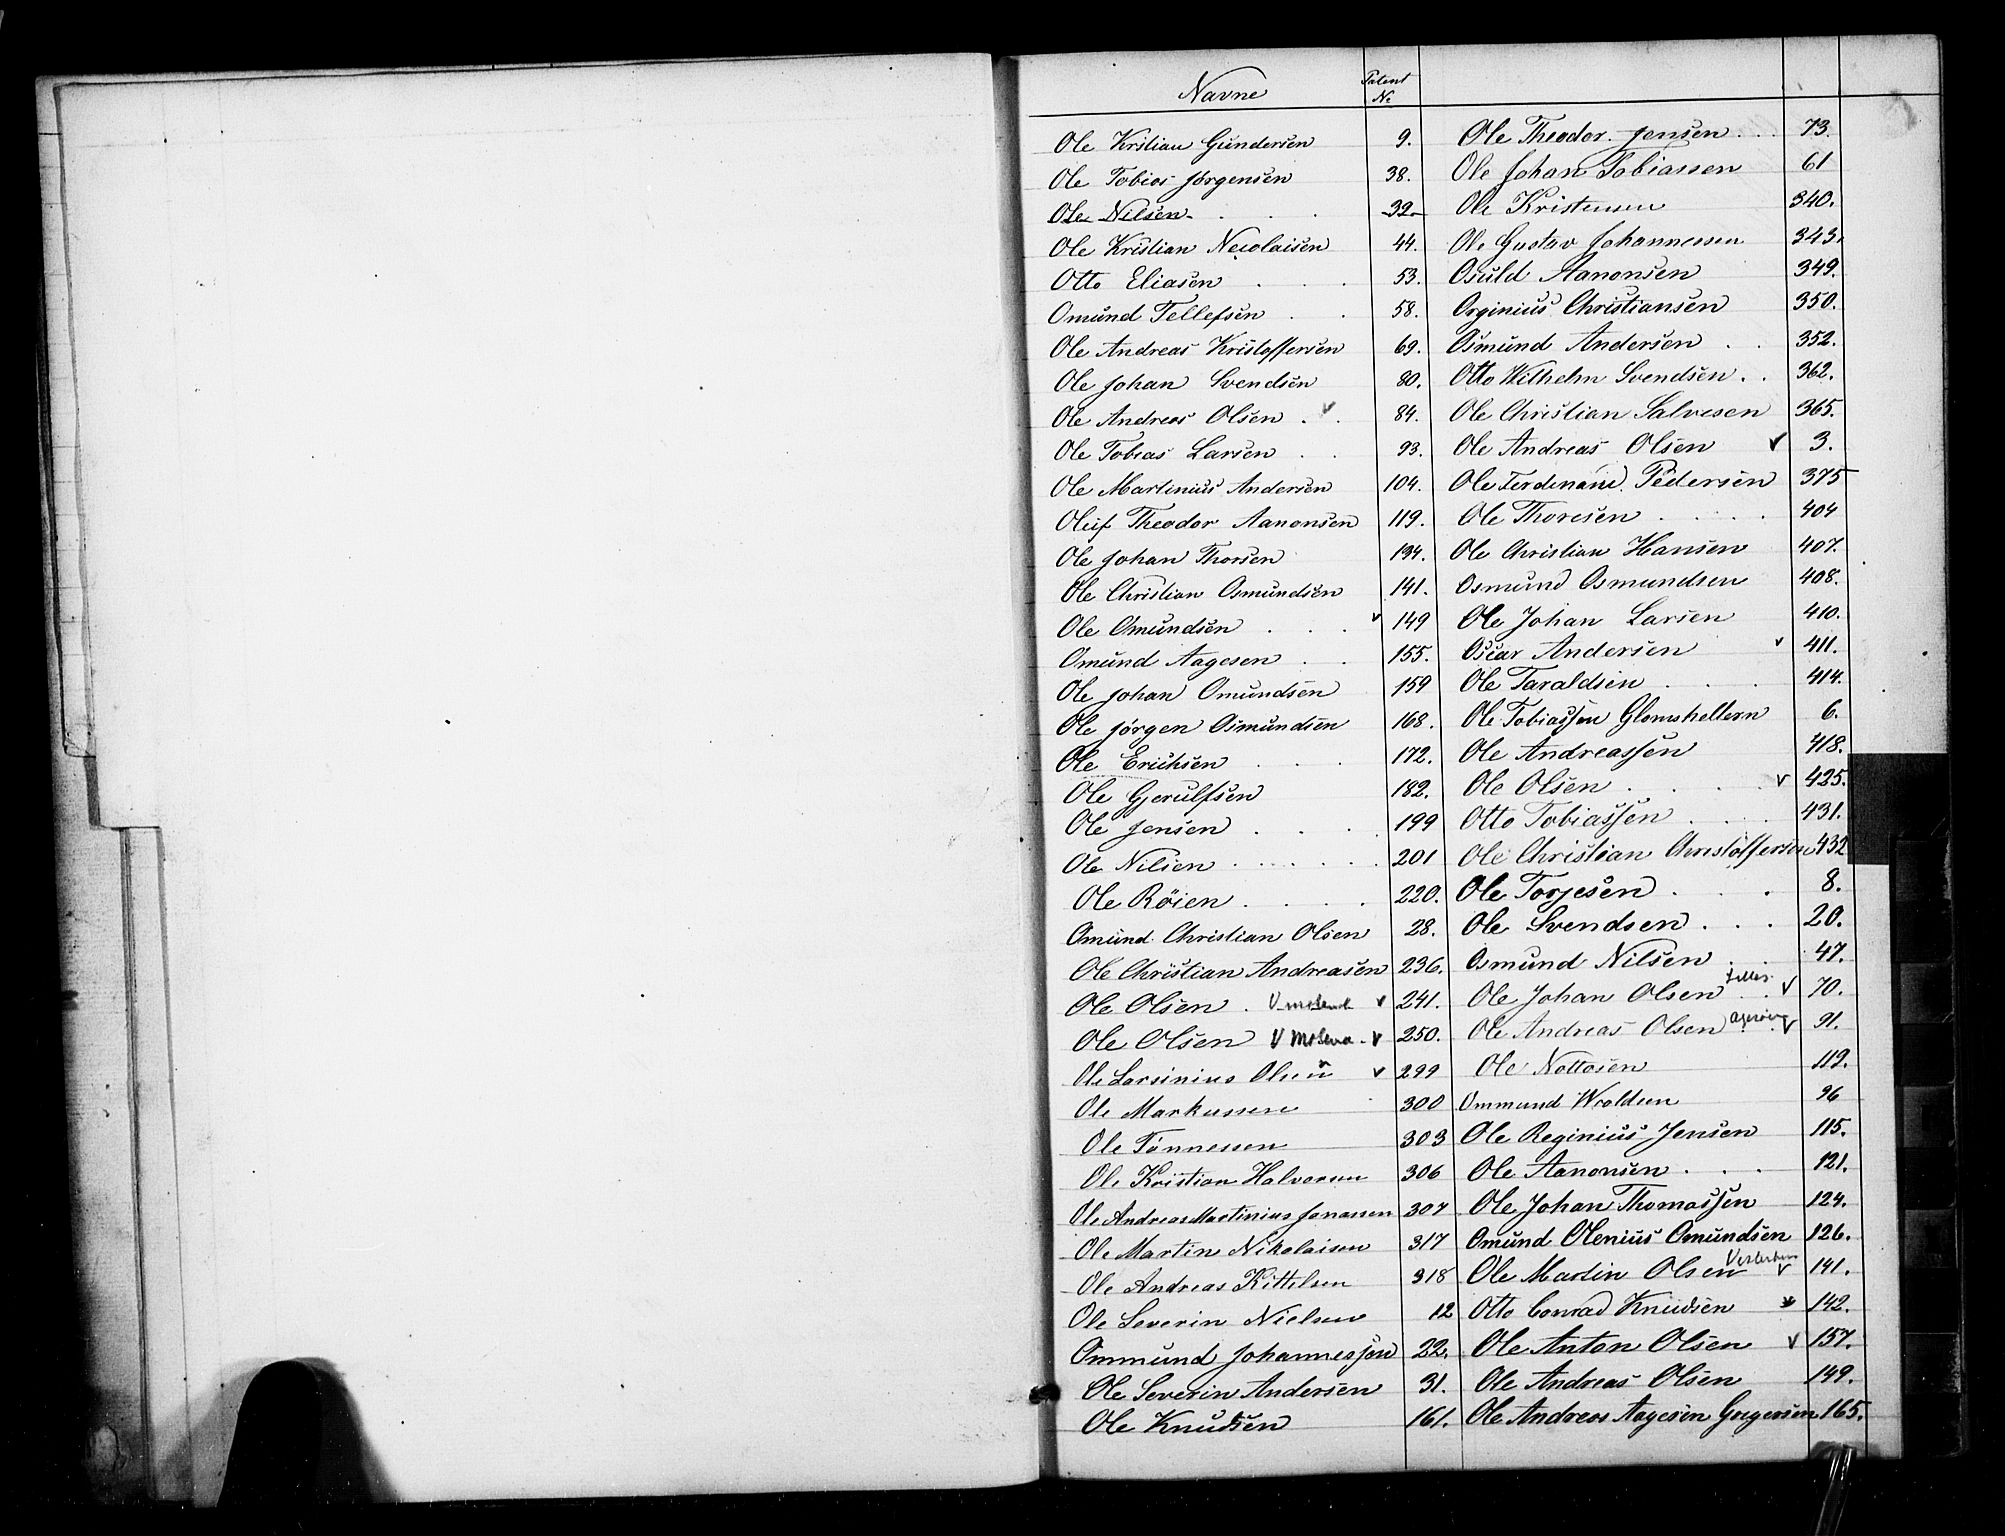 Navne Patent No
Ole Kristian Gundersen 9.
Ole Tobias Jørgensen 38.
Ole Nilsen 32.
Ole Kristian Necolaisen 44.
Otto Eliasen 53.
Omund Tellefsen 58.
Ole Andreas Kristoffersen 69.
Ole Johan Svendsen 80.
Ole Andreas Olsen v 84.
Ole Tobias Larsen 93.
Ole Martinius Andersen 104.
Oluf Theodor Aanonsen 119.
Ole Johan Thorsen 134.
Ole Christian Osmundsen 141.
Ole Omundsen v 149
Omund Aagesen 155.
Ole Johan Omundsen 159
Ole Jørgen Osmundsen 168.
Ole Erichsen 172.
Ole Gjerulfsen 182.
Ole Jensen 199
Ole Nilsen 201
Ole Röien 220.
Omund Christian Olsen 28.
Ole Christian Andreasen 236.
Ole Olsen v v 241.
Ole Olsen v v 250.
Ole Larsinius Olsen v 299
Ole Markussen 300
Ole Tönnessen 303
Ole Kristian Halvorsen 306
Ole Andreas Martinius Jonassen 307
Ole Martin Nikolaisen 317
Ole Andreas Kittelsen 318
Ole Severin Nielsen 12
Ommund Johannessen 22.
Ole Severin Andersen 31.
Ole Knudsen 161.
Ole Theodor Jensen 73
Ole Johan Tobiassen 61
Ole Kristensen 340.
Ole Gustav Johannessen 343.
Osuld Aanonsen 349.
Orginius Christiansen 350.
Osmund Andersen 352.
Otto Wilhelm Svendsen 362.
Ole Christian Salvesen 365.
Ole Andreas Olsen v 3.
Ole Ferdinand Pedersen 375
Ole Thoresen 404
Ole Christian Hansen 407.
Osmund Osmundsen 408.
Ole Johan Larsen 410.
Oscar Andersen v 411.
Ole Taraldsen 414.
Ole Tobiassen Glomshellern 6.
Ole Andreassen 418.
Ole Olsen v 425.
Otto Tobiassen 431.
Ole Christian Christoffersen 432
Ole Torjesen 8.
Ole Svendsen 20.
Osmund Nilsen 47.
Ole Johan Olsen v 70.
Ole Andreas Olsen v 91.
Ole Nottosen 119.
Ommund Wroldsen 96
Ole Reginius Jensen 115.
Ole Aanonsen 121.
Ole Johan Thomassen 124.
Omund Olenius Omundsen 126.
Ole Martin Olsen v 141.
Otto Conrad Knudsen 142.
Ole Anton Olsen v 157.
Ole Andreas Olsen 149.
Ole Andreas Aagesen Gregersen 165.